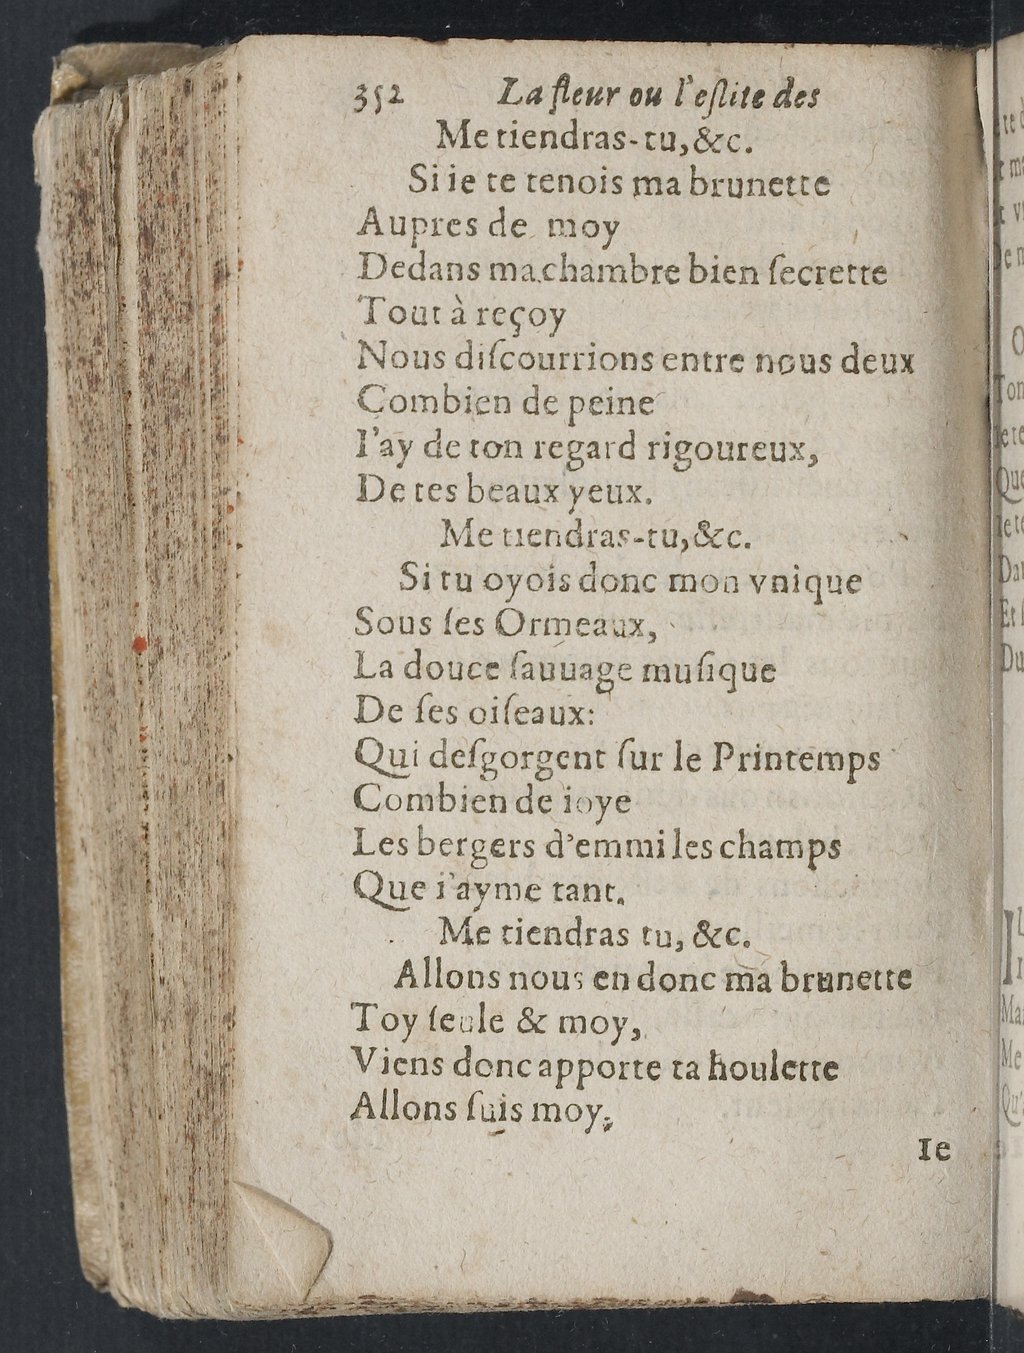 352 La fleur ou l'eslite des
Me tiendras-tu, &c.
Si ie te tenois ma brunette
Aupres de moy
Dedans ma chambre bien ſecrette
Tout à reçoy
Nous diſcourrions entre nous deux
Combien de peine
I'ay de ton regard rigoureux,
De tes beaux yeux.
Me tiendras-tu, &c.
Si tu oyois donc mon vnique
Sous ſes Ormeaux,
La douce ſauuage muſique
De ſes oiſeaux:
Qui deſgorgent ſur le Printemps
Combien de ioye
Les bergers d'emmi les champs
Que i'ayme tant.
Me tiendras tu, &c.
Allons nous en donc ma brunette
Toy ſeule & moy,
Viens donc apporte ta houlette
Allons ſuis moy.
Ie